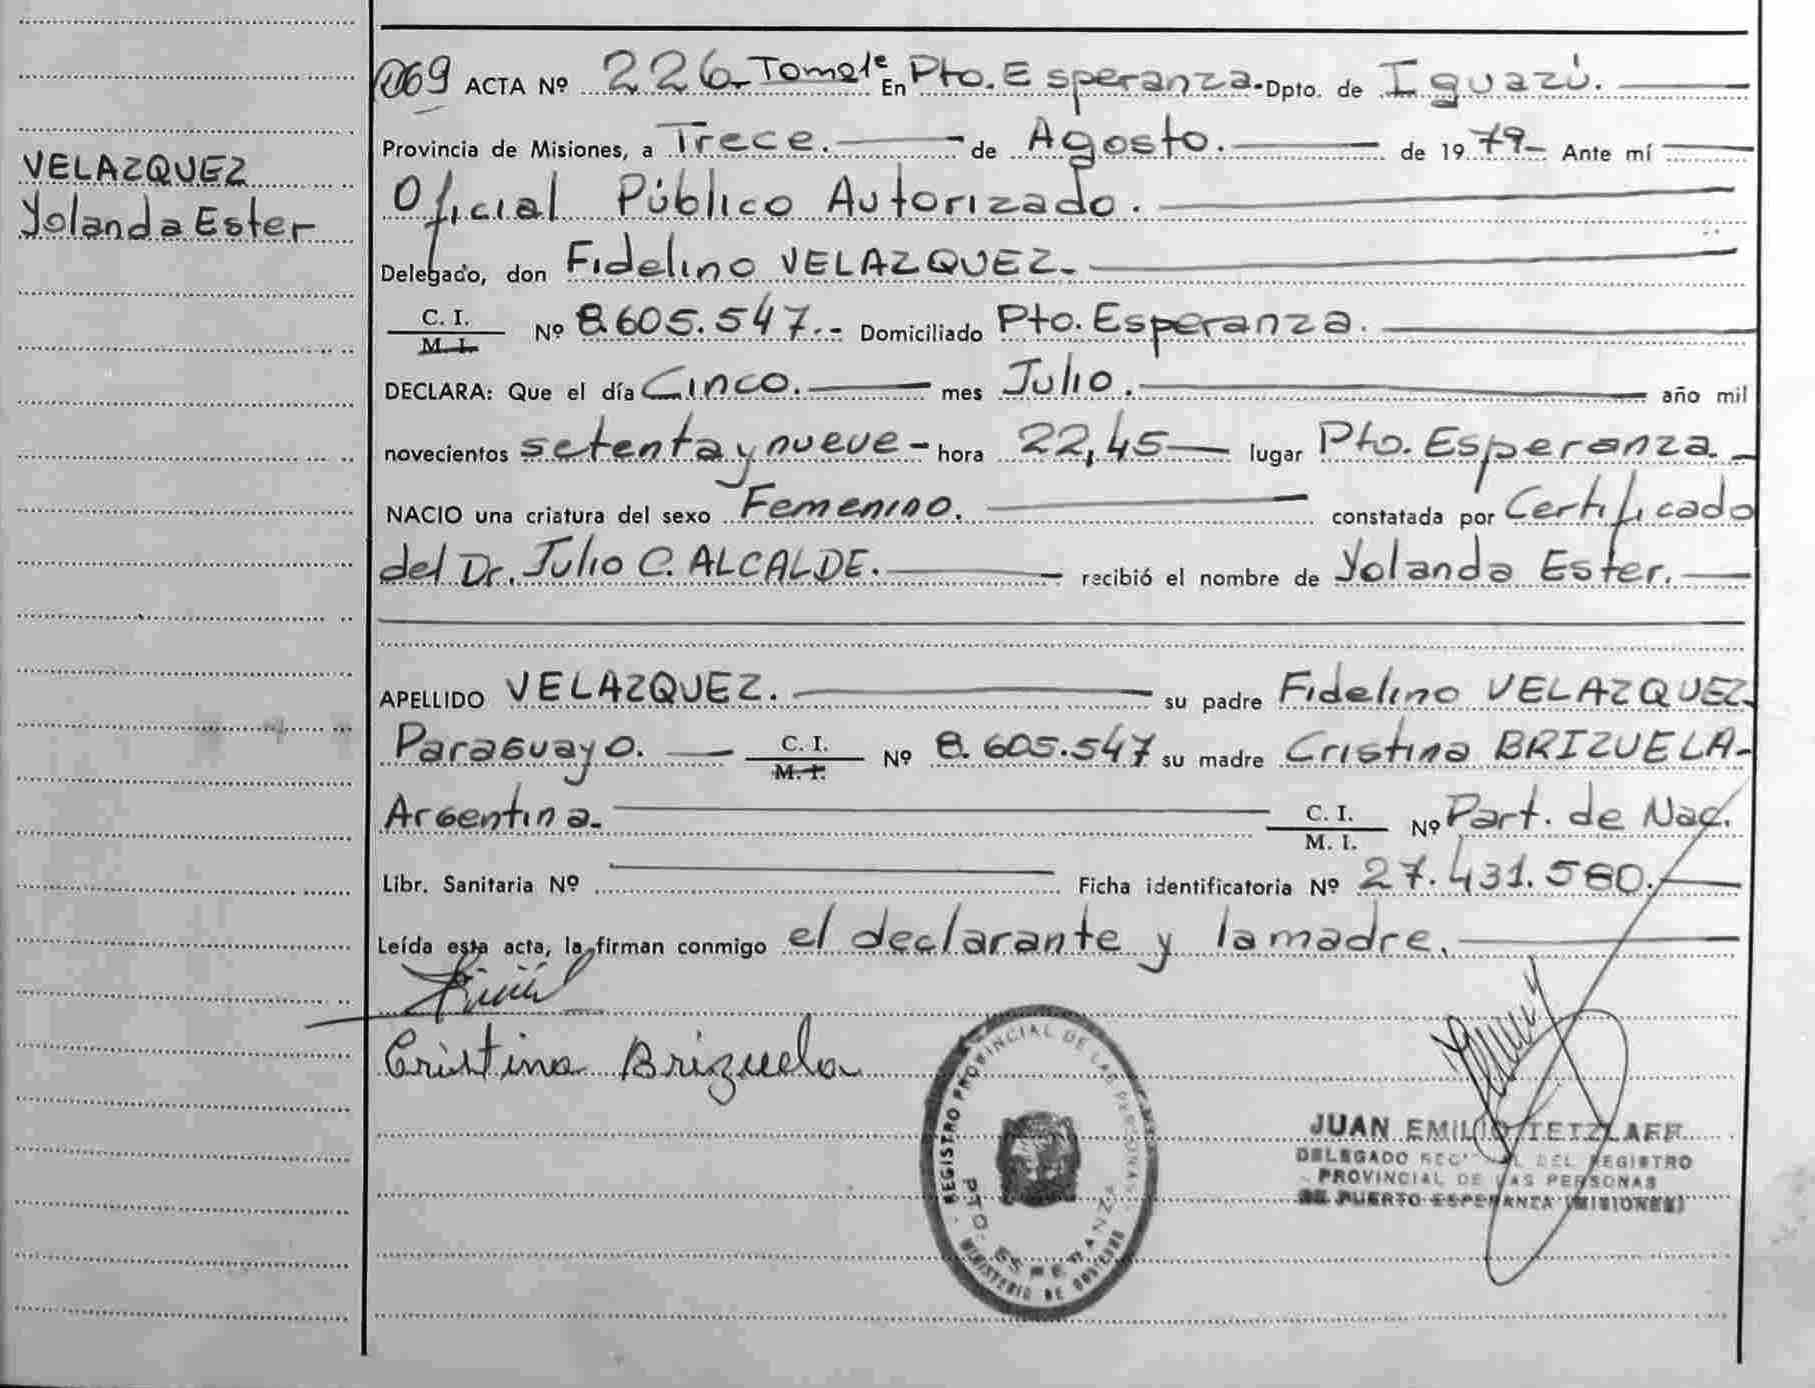 VELAZQUEZ
Yolanda Ester
069 ACTA Nº 226 Tomo 1º En Pto. Esperanza - Dpto. de Iguazú.
Provincia de Misiones, a Trece. de Agosto. de 1979 - Ante mí
Oficial Público Autorizado.
Delegado, don Fidelino VELAZQUEZ.-
C. I. M. I. Nº 8.605.547.- Domiciliado Pto. Esperanza.
DECLARA: Que el día Cinco. mes Julio. año mil
novecientos setenta y nueve - hora 22,45 lugar Pto. Esperanza.
NACIO una criatura del sexo Femenino. constatada por Certificado
del Dr. Julio C. ALCALDE. recibió el nombre de Yolanda Ester.
APELLIDO VELAZQUEZ. su padre Fidelino VELAZQUEZ
Paraguayo. C. I. M. I. Nº 8.605.547 su madre Cristina BRIZUELA-
Argentina. C. I. M. I. Nº Part. de Nac.
Libr. Sanitaria Nº Ficha identificatoria Nº 27.431.580.
Leída esta acta, la firman conmigo el declarante y la madre.
Cristina Brizuela
REGISTRO PROVINCIAL DE LAS PERSONAS
PTO. ESPERANZA
MINISTERIO DE GOBIERNO
JUAN EMILIO TETZLAFF
DELEGADO DEL REGISTRO
PROVINCIAL DE LAS PERSONAS
DE PUERTO ESPERANZA (MISIONES)